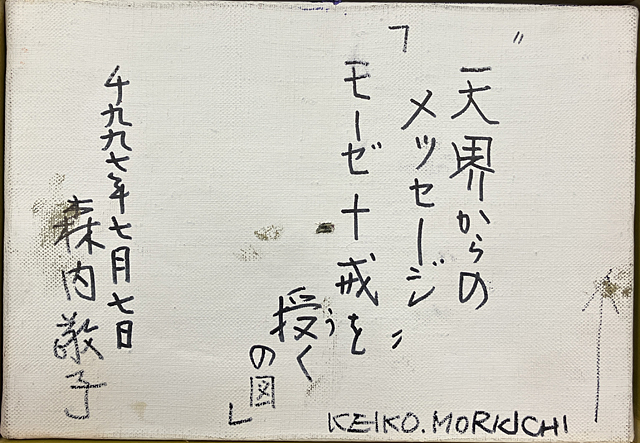 "天界からの
メッセージ"
「モーゼ十戒を
授うく
の図」
千九九七年七月七日
森内敬子
KEIKO.MORIUCHI